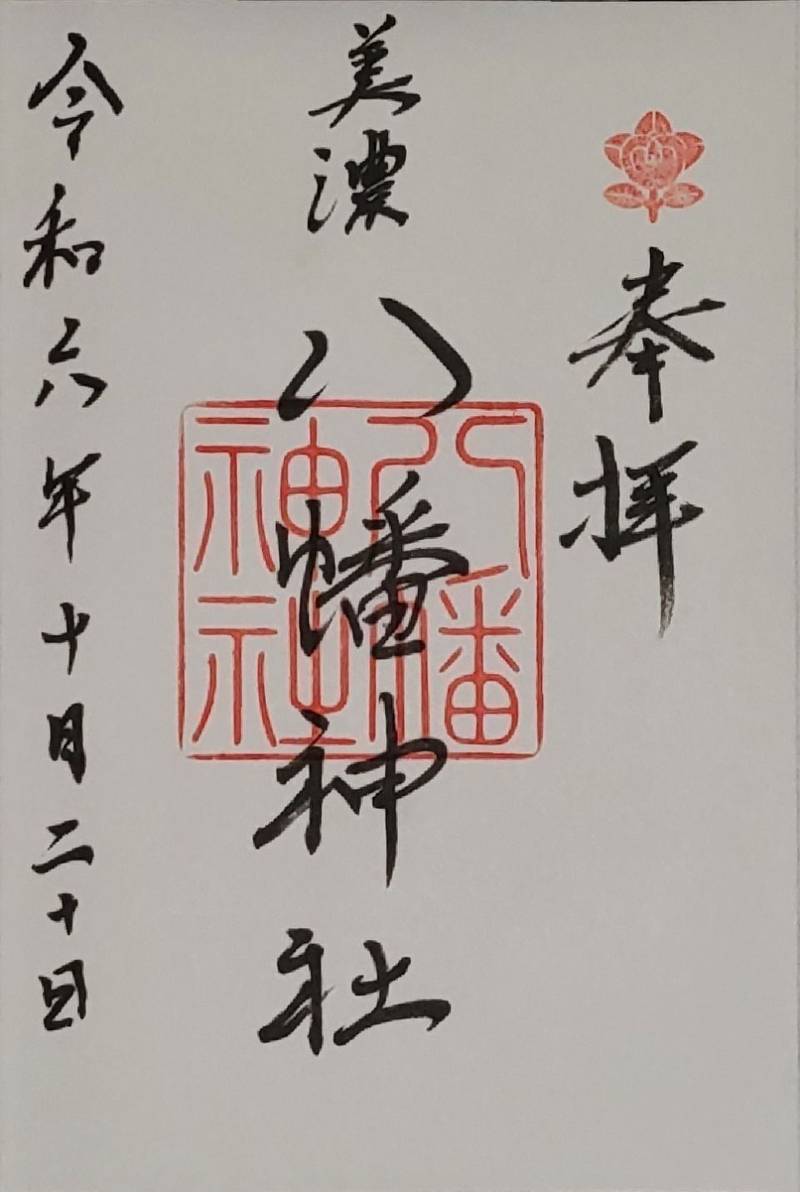 奉拝
美濃
八幡神社
八幡
神社
令和六年十月二十日